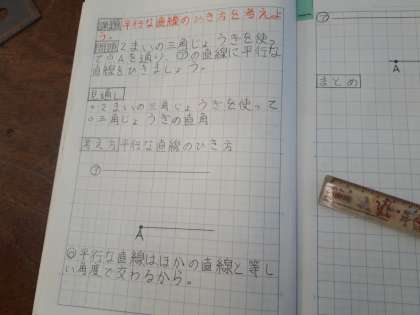 課題 平行な直線のひき方を考えよ
う。
問題 2まいの三角じょうぎを使っ
て点Aを通り、㋐の直線に平行な
直線をひきましょう。
見通し
○2まいの三角じょうぎを使って
○三角じょうぎの直角
考え方 平行な直線のひき方
㋐
A
平行な直線はほかの直線と等し
い角度で交わるから。
㋐
A
まとめ